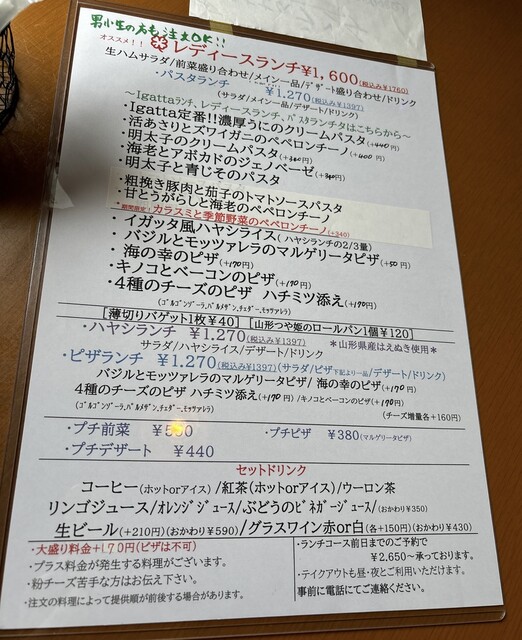 男小生の方も注文OK!!
オススメ!! レディースランチ¥1,600(税込み¥1760)
生ハムサラダ/前菜盛り合わせ/メイン一品/デザート盛り合わせ/ドリンク
・パスタランチ ¥1,270(税込み¥1397)
(サラダ/メイン一品/デザート/ドリンク)
～Igattaランチ、レディースランチ、パスタランチはこちらから～
・Igatta定番!!濃厚うにのクリームパスタ(+440円)
・活あさりとズワイガニのペペロンチーノ(+400円)
・明太子のクリームパスタ
・海老とアボカドのジェノベーゼ
・明太子と青じそのパスタ
・粗挽き豚肉と茄子のトマトソースパスタ
・甘とうがらしと海老のペペロンチーノ
・期間限定!カラスミと季節野菜のペペロンチーノ(+340)
・イガッタ風ハヤシライス(ハヤシランチの2/3量)
・バジルとモッツァレラのマルゲリータピザ(+50円)
・海の幸のピザ(+170円)
・キノコとベーコンのピザ(+170円)
・4種のチーズのピザ ハチミツ添え(+170円)
(ゴルゴンゾーラ、パルメザン、チェダー、モッツァレラ)
[薄切りバゲット1枚¥40] [山形つや姫のロールパン1個¥120]
・ハヤシランチ ¥1,270(税込み¥1397) *山形県産はえぬき使用*
サラダ/ハヤシライス/デザート/ドリンク
・ピザランチ ¥1,270(税込み¥1397)(サラダ/ピザ下記より一品/デザート/ドリンク)
バジルとモッツァレラのマルゲリータピザ/海の幸のピザ(+170円)
4種のチーズのピザ ハチミツ添え(+170円)/キノコとベーコンのピザ(+170円)
(ゴルゴンゾーラ、パルメザン、チェダー、モッツァレラ) (チーズ増量各+160円)
・プチ前菜 ・プチピザ ¥380(マルゲリータピザ)
・プチデザート ¥440
セットドリンク
コーヒー(ホットorアイス)/紅茶(ホットorアイス)/ウーロン茶
リンゴジュース/オレンジジュース/ぶどうのビネガージュース/(おかわり¥350)
生ビール(+210円)(おかわり¥590)/グラスワイン赤or白(各+150円)(おかわり¥430)
・大盛り料金+170円(ピザは不可)
・プラス料金が発生する料理がございます。
・粉チーズ苦手な方はお伝え下さい。
・注文の料理によって提供順が前後する場合があります。
・ランチコース前日までのご予約で
¥2,650~承っております。
・テイクアウトも昼・夜とご利用いただけます。
事前に電話にてご連絡ください。